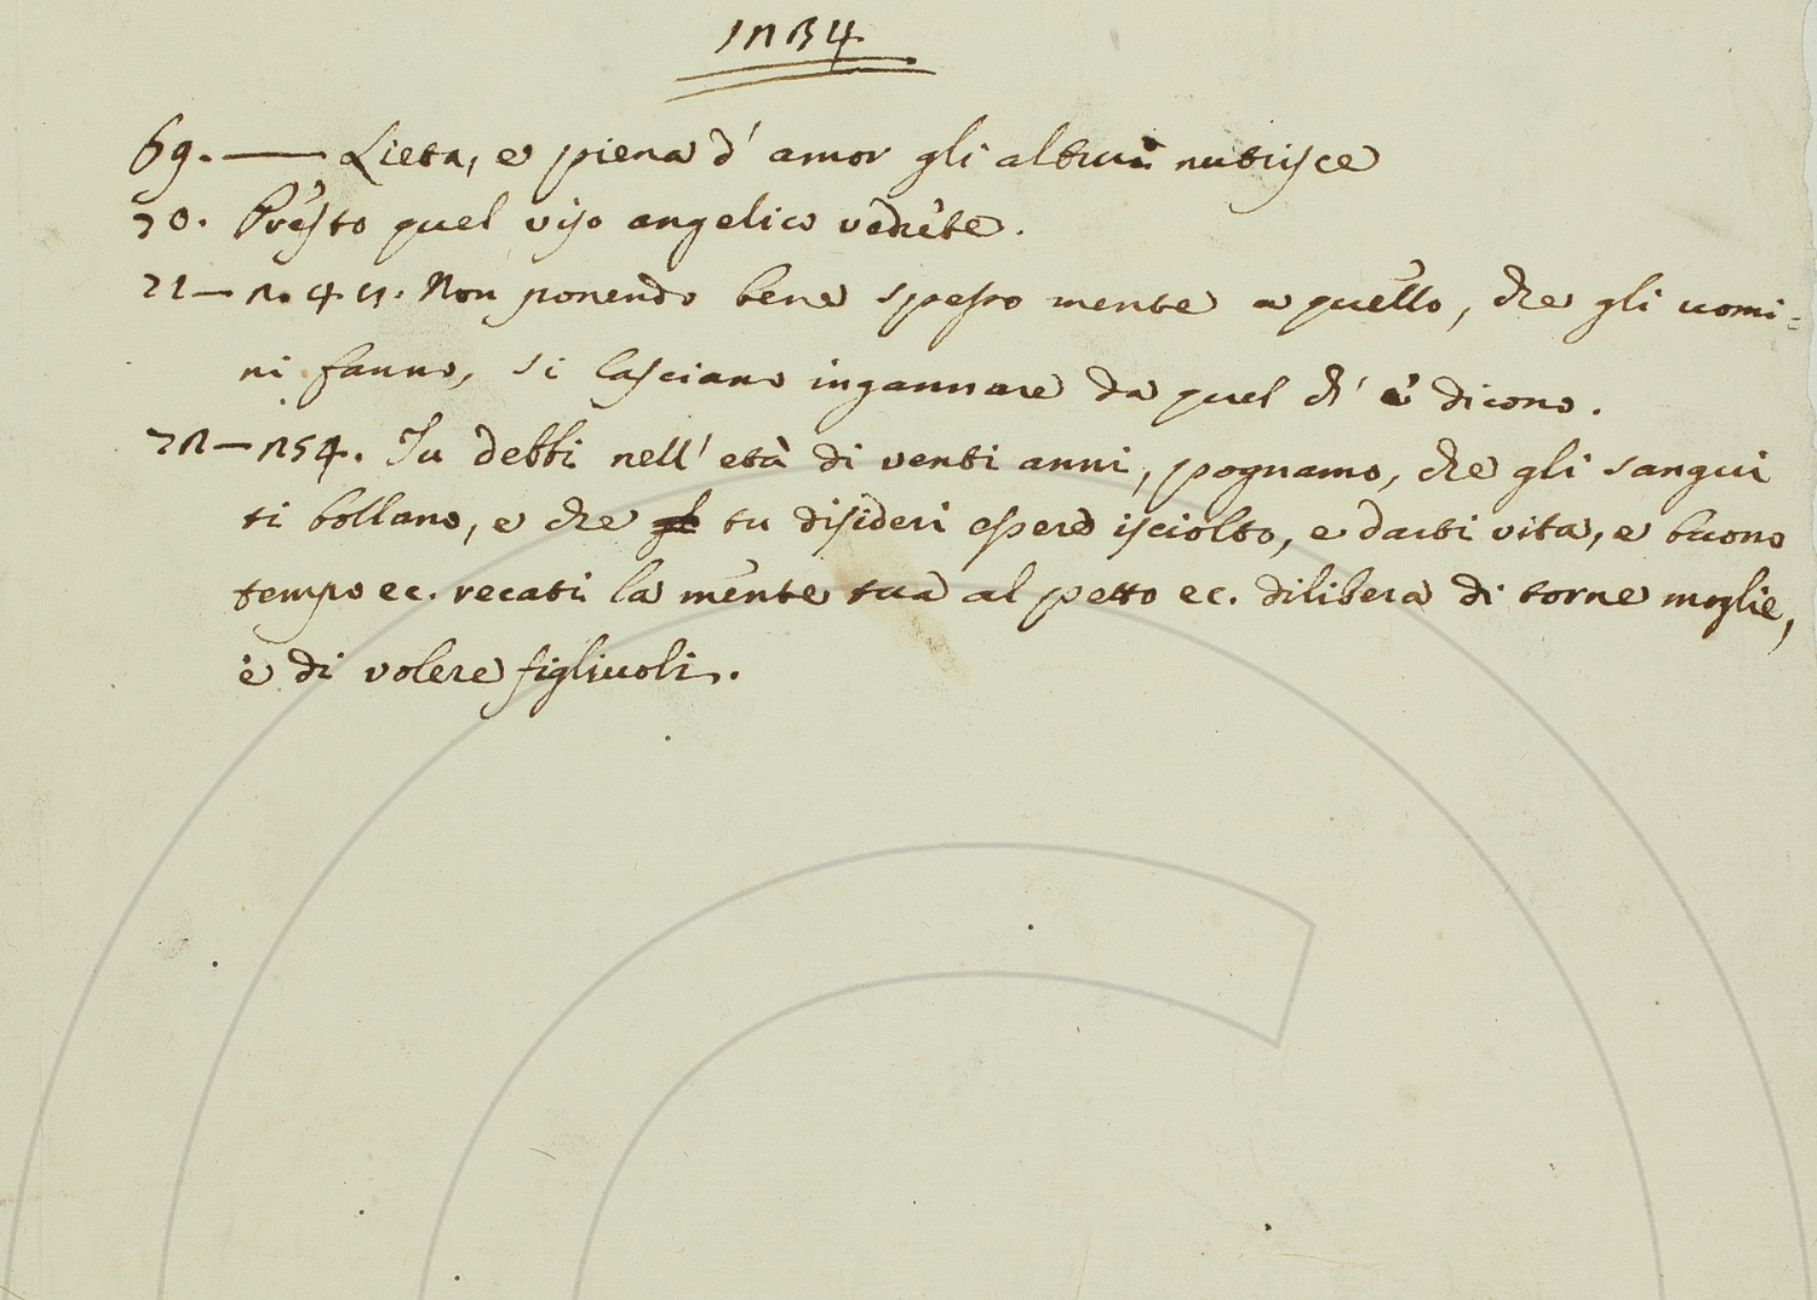 1234
69. — Lieta, e piena d' amor gli altrui nutrisce
70. Presto quel viso angelico vedrete.
71 — Non ponendo bene spesso mente a quello, che gli uomi=
ni fanno, si lasciano ingannare da quel ch' e' dicono.
72 — 254. Tu debbi nell' età di venti anni, pognamo, che gli sangui
ti bollano, e che tu disideri essere isciolto, e darti vita, e buono
tempo ec. recati la mente tua al petto ec. dilibera di torne moglie,
e di volere figliuoli.